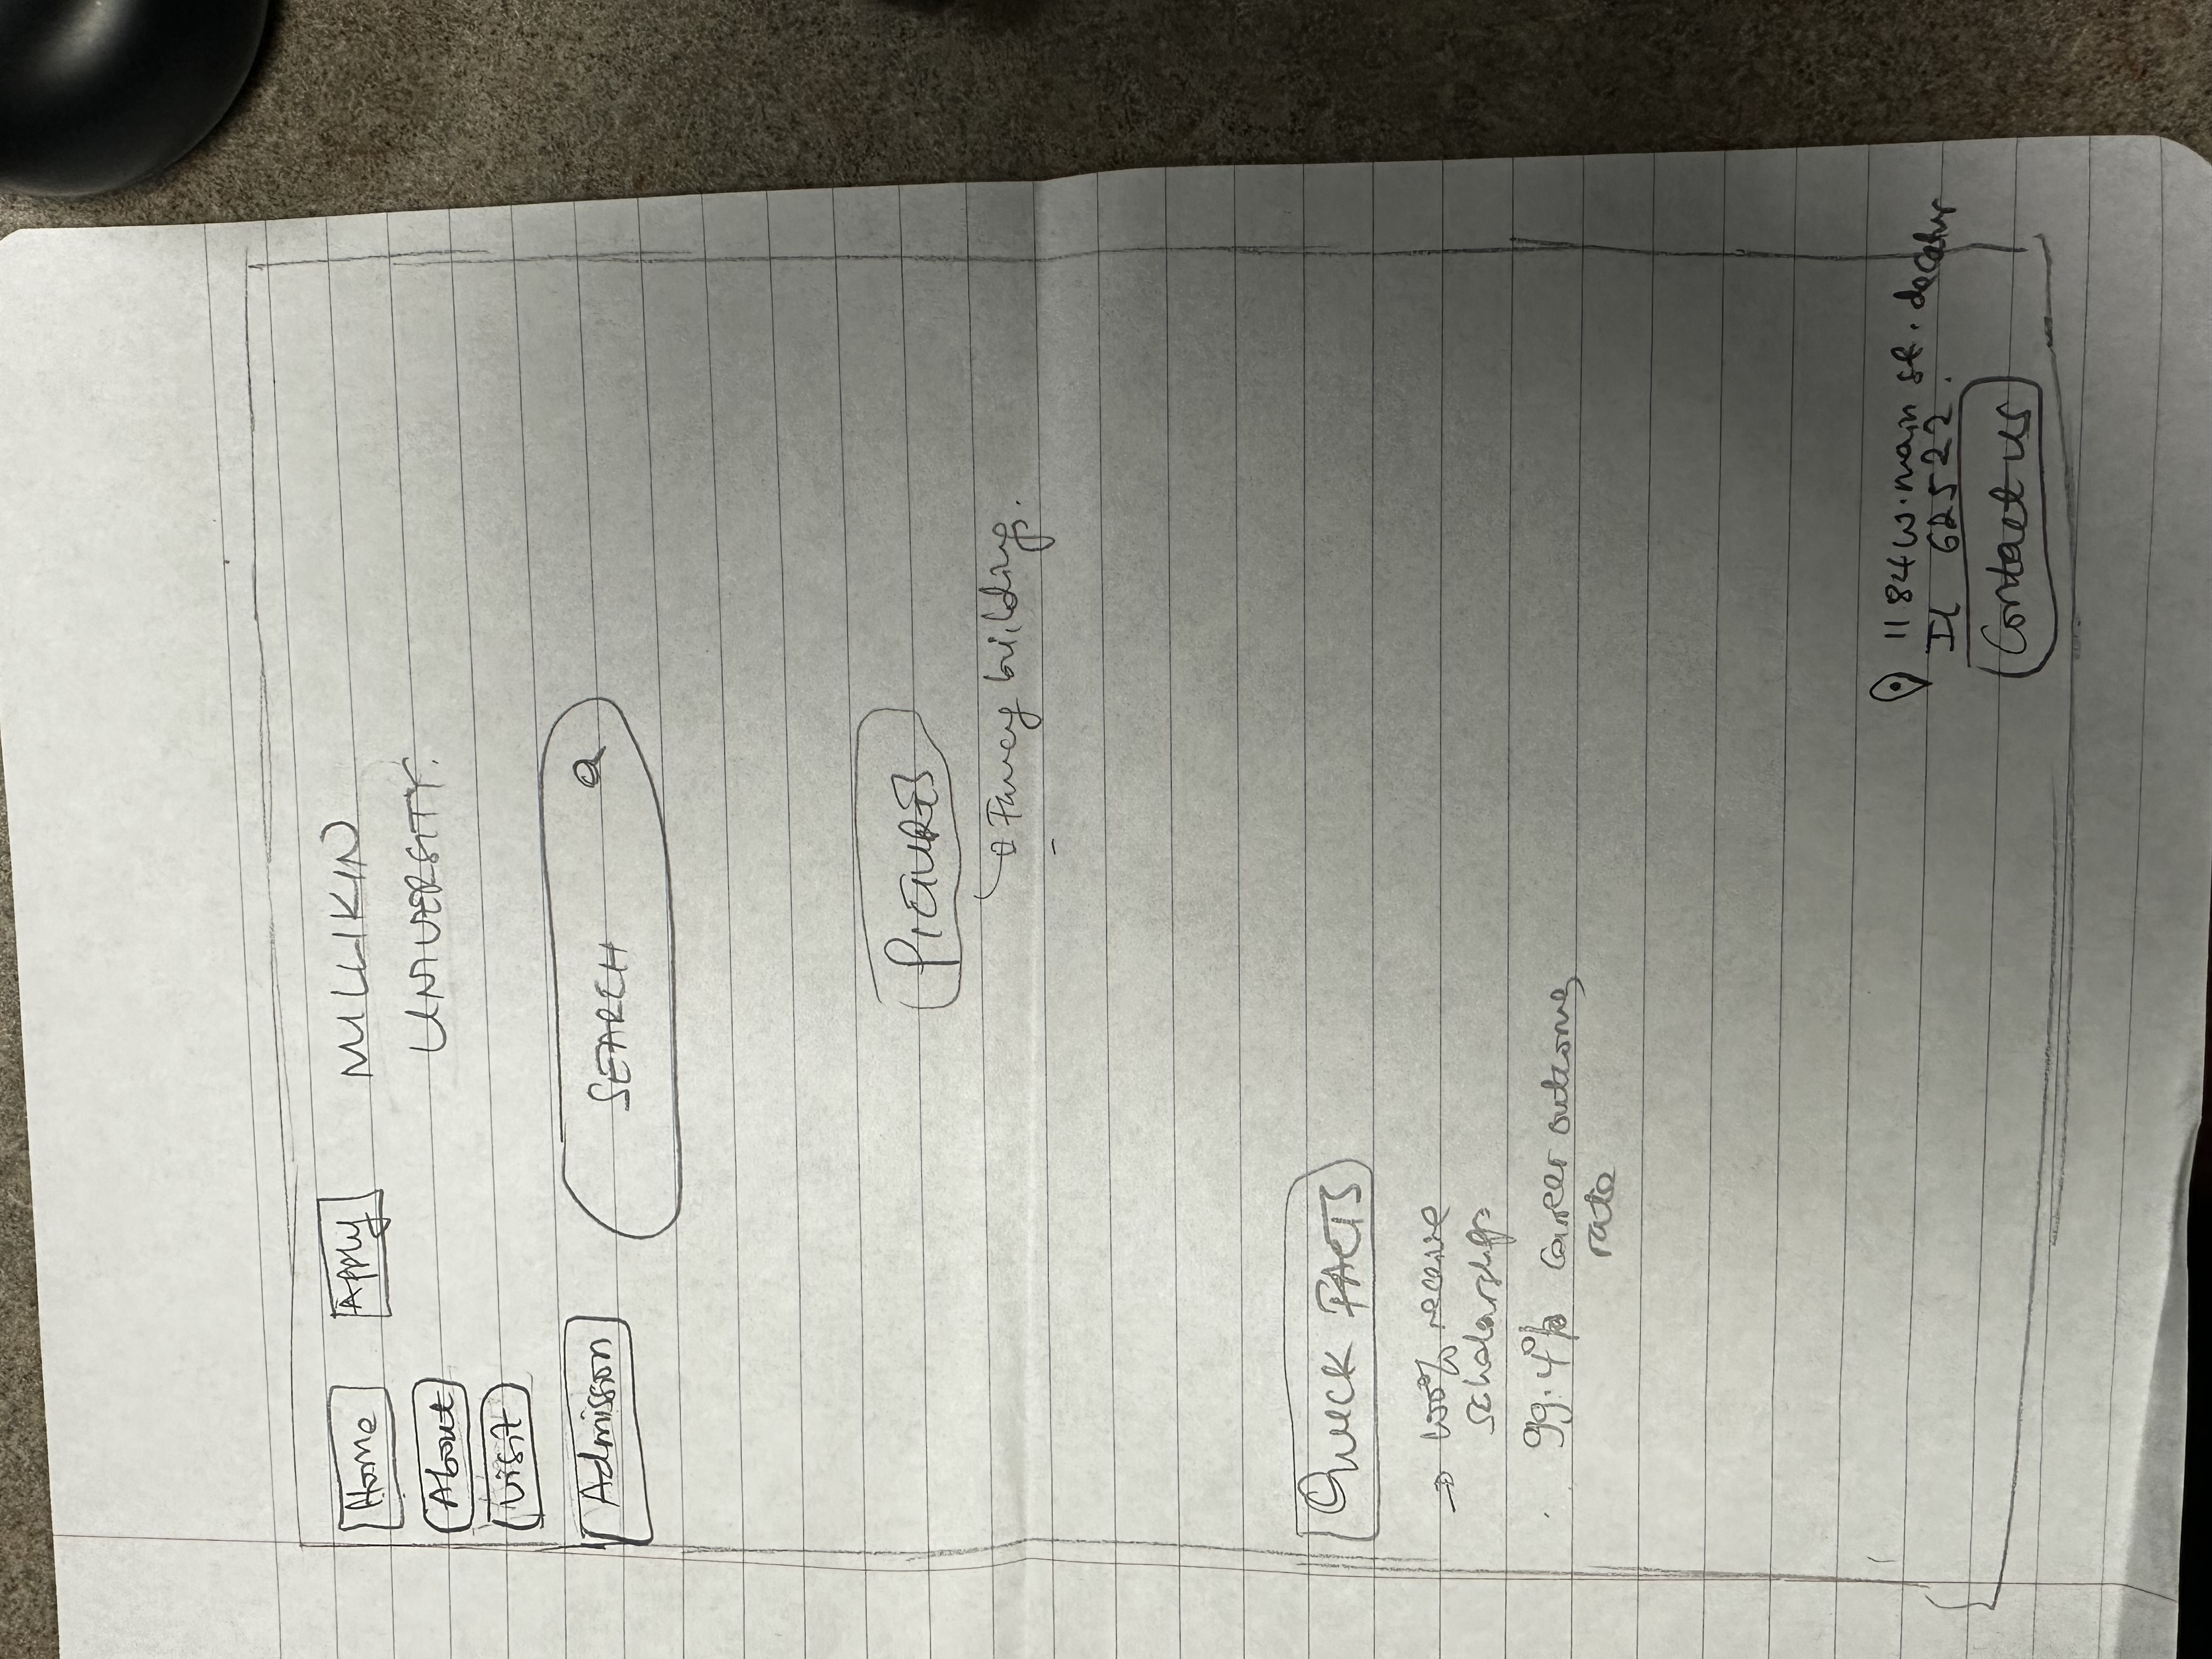 Home Apply MILLIKIN
UNIVERSITY.
About
Visit
Admission SEARCH
PICTURES
Fancy building.
QUICK FACTS
→ 100% receive
scholarships
99.4% career outcome
rate
1184 W. main st. decatur
IL 62522.
Contact us